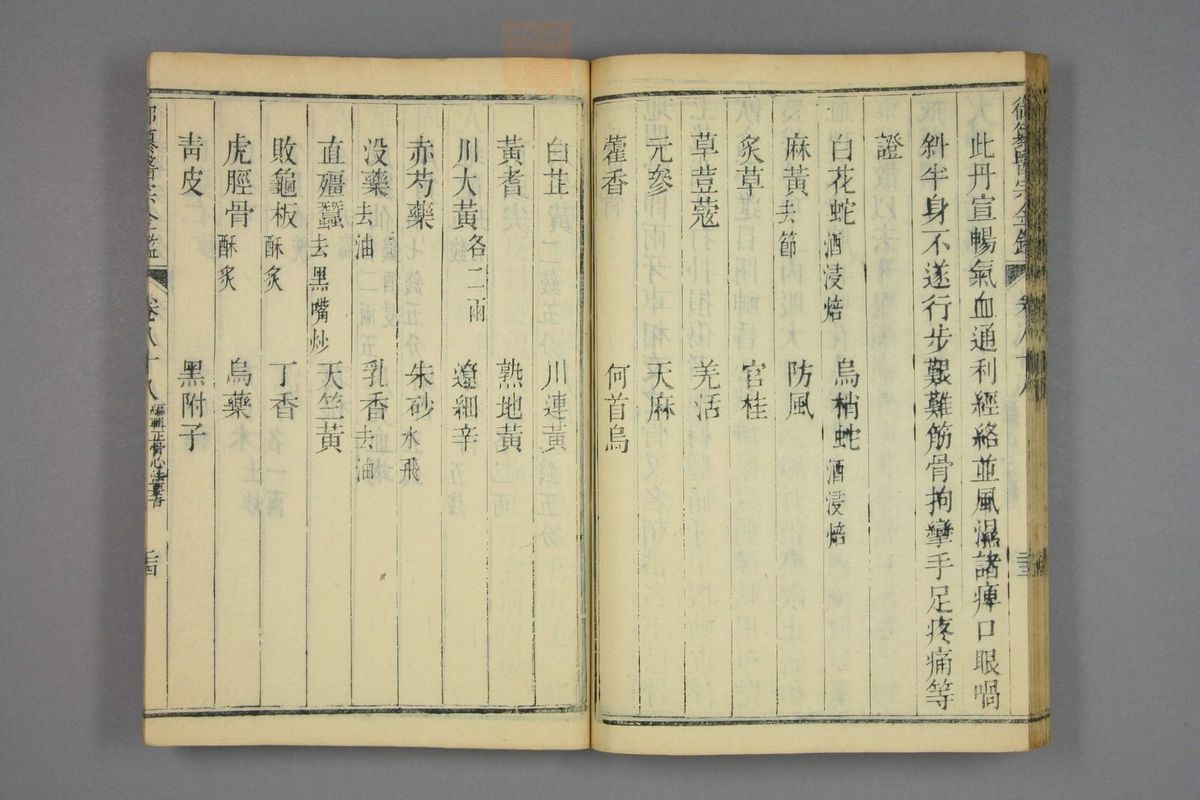 御纂醫宗金鑑 卷八十八 二十三
此丹宣暢氣血通利經絡並風濕諸痺口眼喎
斜半身不遂行步艱難筋骨拘攣手足疼痛等
證
白花蛇酒浸焙 烏梢蛇酒浸焙
麻黃去節 防風
炙草 官桂
草荳蔻 羌活
元參 天麻
藿香 何首烏
白芷 川連黃
黃耆 熟地黃
川大黃各二兩 遼細辛
赤芍藥 朱砂水飛
没藥去油 乳香去油
直殭蠶去黑嘴炒 天竺黃
敗龜板酥炙 丁香
虎脛骨酥炙 烏藥
靑皮 黑附子
御纂醫宗金鑑 卷八十八 編輯正骨心法要旨 二十四